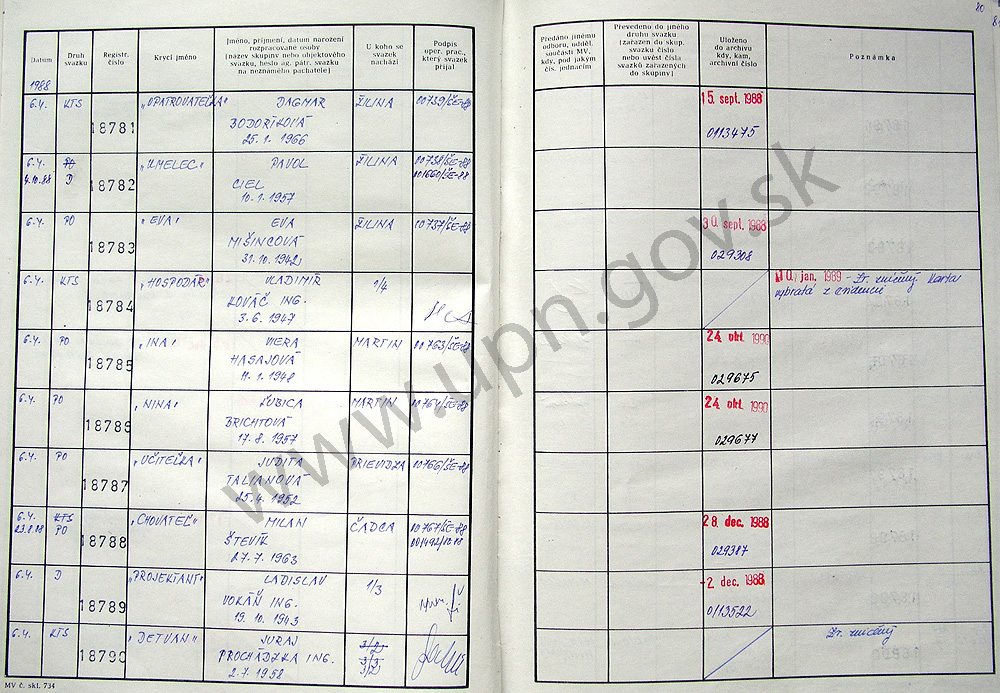 80
Datum
Druh svazku
Registr. číslo
Krycí jméno
Jméno, příjmení, datum narození
rozpracované osoby
(název skupiny nebo objektového
svazku, heslo ag. pátr. svazku
na neznámého pachatele)
U koho se
svazek
nachází
Podpis
oper. prac.,
který svazek
přijal
Předáno jinému
odboru, odděl.
součásti MV,
kdy, pod jakým
čís. jednacím
Převedeno do jiného
druhu svazku
(zařazen do skup.
svazku číslo
nebo uvést čísla
svazků zařazených
do skupiny)
Uloženo
do archivu
kdy, kam,
archivní číslo
Poznámka
1988
6.4. KTS 18781 "OPATROVATEĽKA" DAGMAR ŽILINA 00739/ŠE-88 15. sept. 1988
BODORÍKOVÁ 0113475
25.1.1966
6.4. PO 18782 "UMELEC" PAVOL ŽILINA 00738/ŠE-88
4.10.88 D CIEL 001660/ŠE-88
10.1.1957
6.4. PO 18783 "EVA" EVA ŽILINA 00737/ŠE-88 30. sept. 1988
MIŠINCOVÁ 029308
31.10.1942
6.4. KTS 18784 "HOSPODÁR" VLADIMÍR 1/4 10. jan. 1989 - Zv. zničený. Karta
KOVÁČ ING. vybratá z evidencií
3.6.1947
6.4. PO 18785 "INA" VIERA MARTIN 00763/ŠE-88 24. okt. 1990
HASAJOVÁ 029675
11.1.1948
6.4. PO 18786 "NINA" ĽUBICA MARTIN 00764/ŠE-88 24. okt. 1990
BRICHTOVÁ 029677
17.8.1957
6.4. PO 18787 "UČITEĽKA" JUDITA PRIEVIDZA 00766/ŠE-88
TALIANOVÁ
25.4.1952
6.4. KTS 18788 "CHOVATEĽ" MILAN ČADCA 00767/ŠE-88 28. dec. 1988
23.8.88 PO ŠTEVÍK 029387
27.7.1963
6.4. D 18789 "PROJEKTANT" LADISLAV 1/3 -2. dec. 1988
VOKÁŇ ING. 0113522
19.10.1943
6.4. KTS 18790 "DETVAN" JURAJ 3/2 Zv. zničený
PROCHÁDZKA ING. 3/3
2.7.1958 3/2
MV č. skl. 734
www.upn.gov.sk